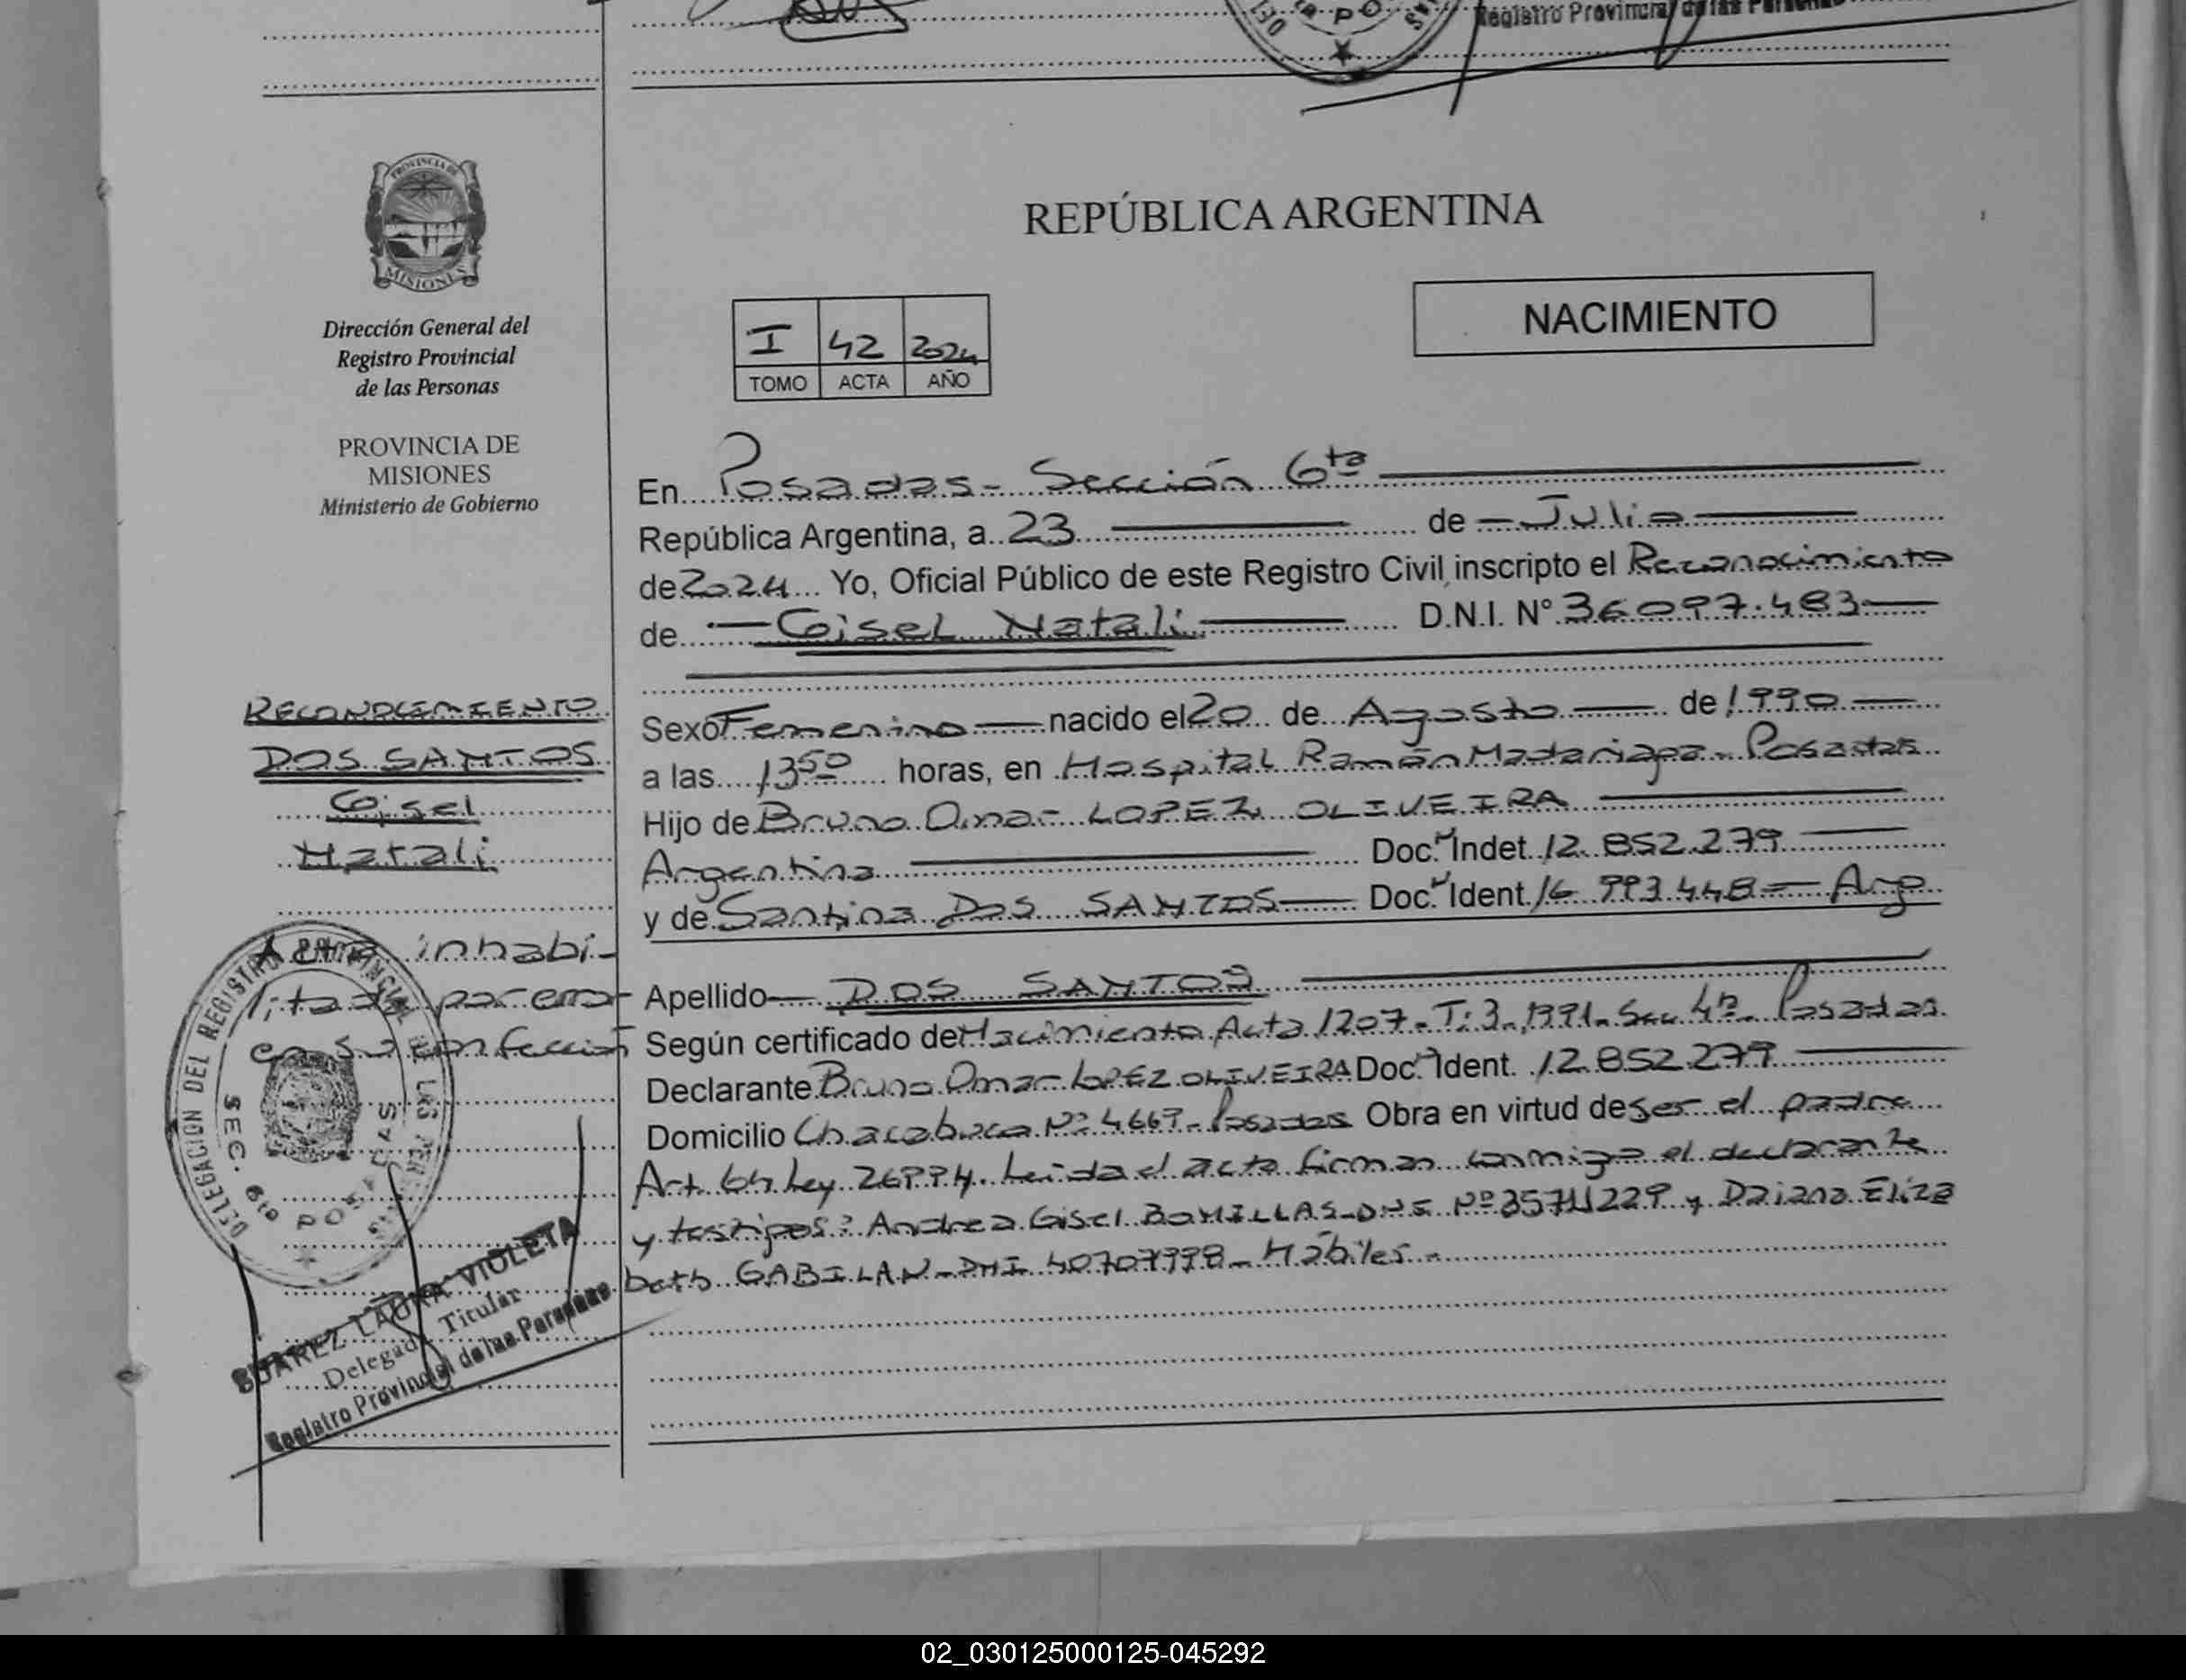 Registro Provincial de las Personas
PROVINCIA DE
MISIONES
Dirección General del
Registro Provincial
de las Personas
PROVINCIA DE
MISIONES
Ministerio de Gobierno
RECONOCIMIENTO
DOS SANTOS
Gisel
Natali
Acta inhabi-
litada por error
en su confección
DELEGACION DEL REGISTRO PROVINCIAL DE LAS PER
SEC. 6ta
POSADAS
SUAREZ LAURA VIOLETA
Delegada Titular
Registro Provincial de las Personas
REPÚBLICA ARGENTINA
NACIMIENTO
I 42 2024
TOMO ACTA AÑO
En Posadas - Sección 6ta
República Argentina, a 23 de Julio
de 2024 Yo, Oficial Público de este Registro Civil inscripto el Reconocimiento
de Gisel Natali D.N.I. N° 36097.483
Sexo Femenino nacido el 20 de Agosto de 1990
a las 13 50 horas, en Hospital Ramón Madariaga - Posadas
Hijo de Bruno Omar LOPEZ OLIVEIRA
Argentina Doc. Indet. 12.852.279
y de Santina DOS SANTOS Doc. Ident 16 993.448 = Arg
Apellido DOS SANTOS
Según certificado de Nacimiento Acta 1207 - T: 3 - 1991 - Sec 4ta - Posadas
Declarante Bruno Omar LOPEZ OLIVEIRA Doc. Ident. 12.852.279
Domicilio Chacabuco N° 4669 - Posadas Obra en virtud de ser el padre
Art. 64 Ley 26994. Leida el acta firman conmigo el declarante
y testigos: Andrea Gisel BONILLAS - DNI N° 35711229 y Daiana Eliza
beth GABILAN - DNI 40707998 - Hábiles -
02_030125000125-045292